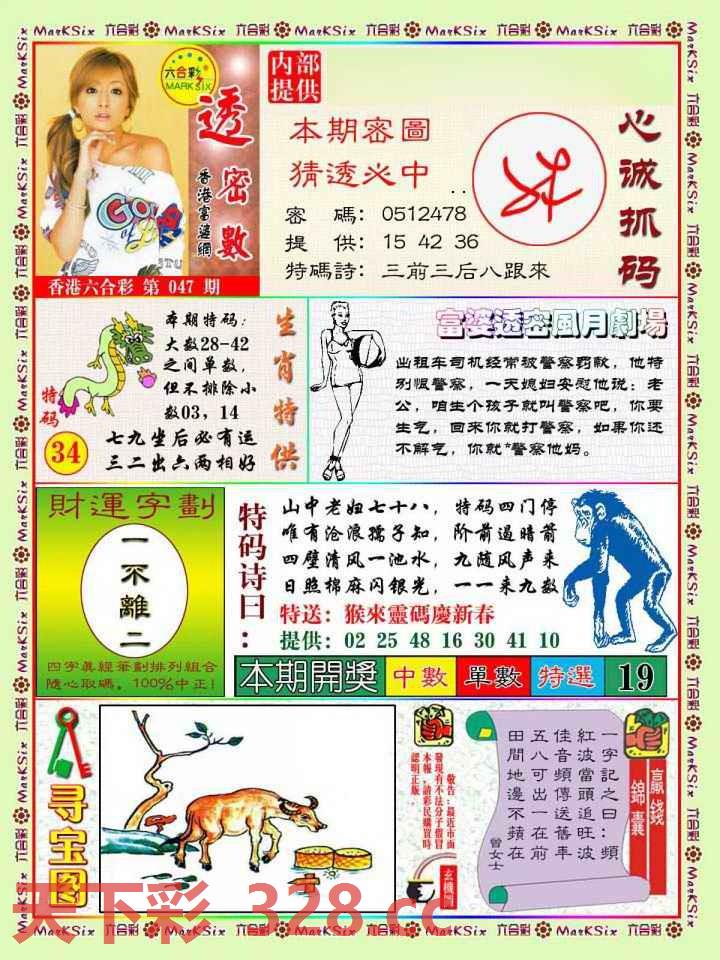 六合彩 MarKSix
六合彩
MARK SIX
透密數
香港富婆網
香港六合彩 第 047 期
内部
提供
本期密圖
猜透必中
密 碼: 0512478
提 供: 15 42 36
特碼詩: 三前三后八跟來
心诚抓码
本期特码:
大数28-42
之间单数,
但不排除小
数03, 14
七九坐后必有运
三二出六两相好
特码
34
生肖特供
富婆透密風月劇場
出租车司机经常被警察罚款, 他特
别恨警察, 一天媳妇安慰他说: 老
公, 咱生个孩子就叫警察吧, 你要
生气, 回来你就打警察, 如果你还
不解气, 你就*警察他妈。
財運字劃
一不離二
四字真經筆劃排列組合
隨心取碼, 100%中正!
特码诗曰:
山中老妞七十八, 特码四门停
唯有沧浪孺子知, 阶前遏暗箭
四壁清风一池水, 九随风声来
日照棉麻闪银光, 一一来九数
特送: 猴來靈碼慶新春
提供: 02 25 48 16 30 41 10
本期開獎 中數 單數 特選 19
寻宝图
敬告: 最近市面
發現有不法分子假冒
本報, 請彩民購買時
認明正版.
玄機
贏錢
錦囊
一字記之曰: 頻
紅波當頭追旺波
佳音頻傳送舊年
五八可出一在前
田間地邊不蘋在
曾女士
天下彩 328.cc